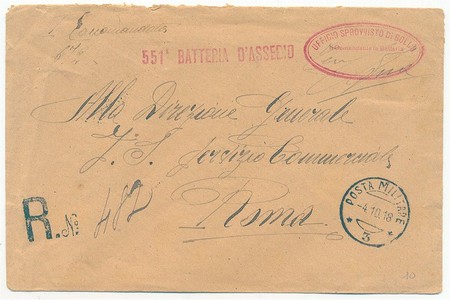 Raccomandata
551ª BATTERIA D'ASSEDIO
UFFICIO SPROVVISTO DI BOLLO
Alla Direzione Generale
F. S. Servizio Commerciale
Roma
R. N. 482
POSTA MILITARE
-4.10.18
3